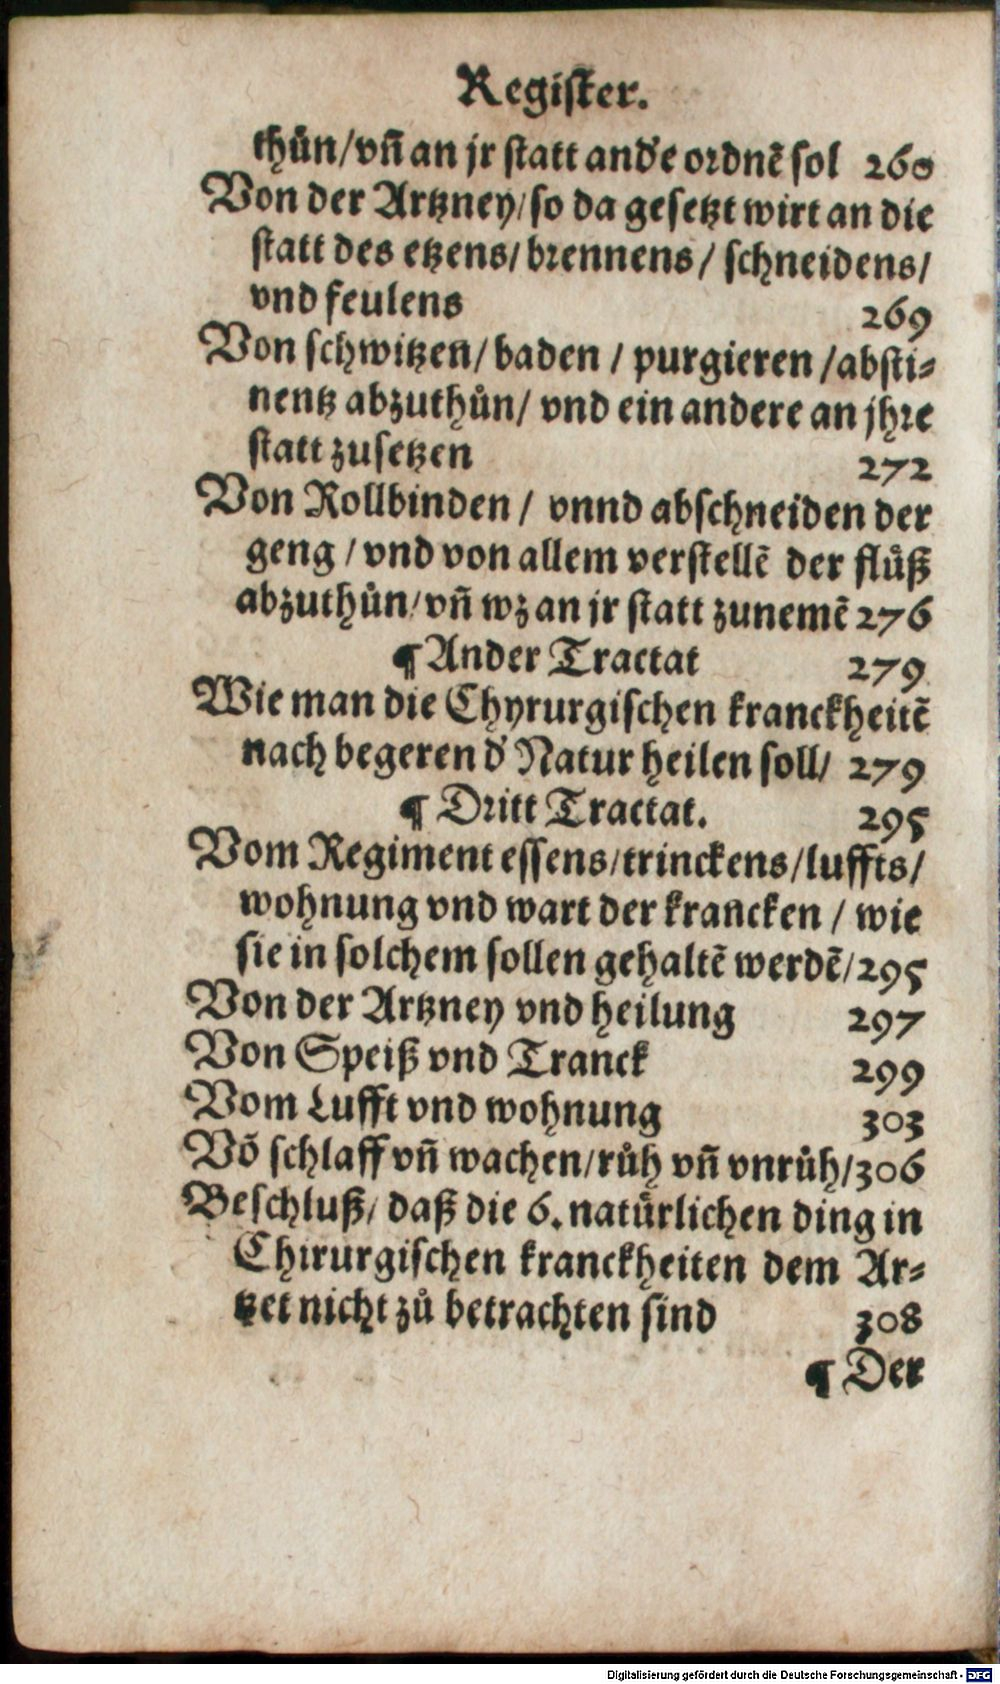 Register.
thůn/vñ an jr statt and'e ordnẽ sol 260
Von der Artzney/so da gesetzt wirt an die
statt des etzens/brennens/ schneidens/
vnd feulens 269
Von schwitzen/baden / purgieren /absti-
nentz abzuthůn/ vnd ein andere an jhre
statt zusetzen 272
Von Rollbinden / vnnd abschneiden der
geng /vnd von allem verstellẽ der flůß
abzuthůn/vñ wz an jr statt zunemẽ 276
¶ Ander Tractat 279
Wie man die Chyrurgischen kranckheitẽ
nach begeren d' Natur heilen soll/ 279
¶ Dritt Tractat. 295
Vom Regiment essens/trinckens/luffts/
wohnung vnd wart der krancken / wie
sie in solchem sollen gehaltẽ werdẽ/295
Von der Artzney vnd heilung 297
Von Speiß vnd Tranck 299
Vom Lufft vnd wohnung 303
Võ schlaff vñ wachen/růh vñ vnrůh/306
Beschluß/ daß die 6. natürlichen ding in
Chirurgischen kranckheiten dem Ar-
tzet nicht zů betrachten sind 308
¶ Der
Digitalisierung gefördert durch die Deutsche Forschungsgemeinschaft - DFG